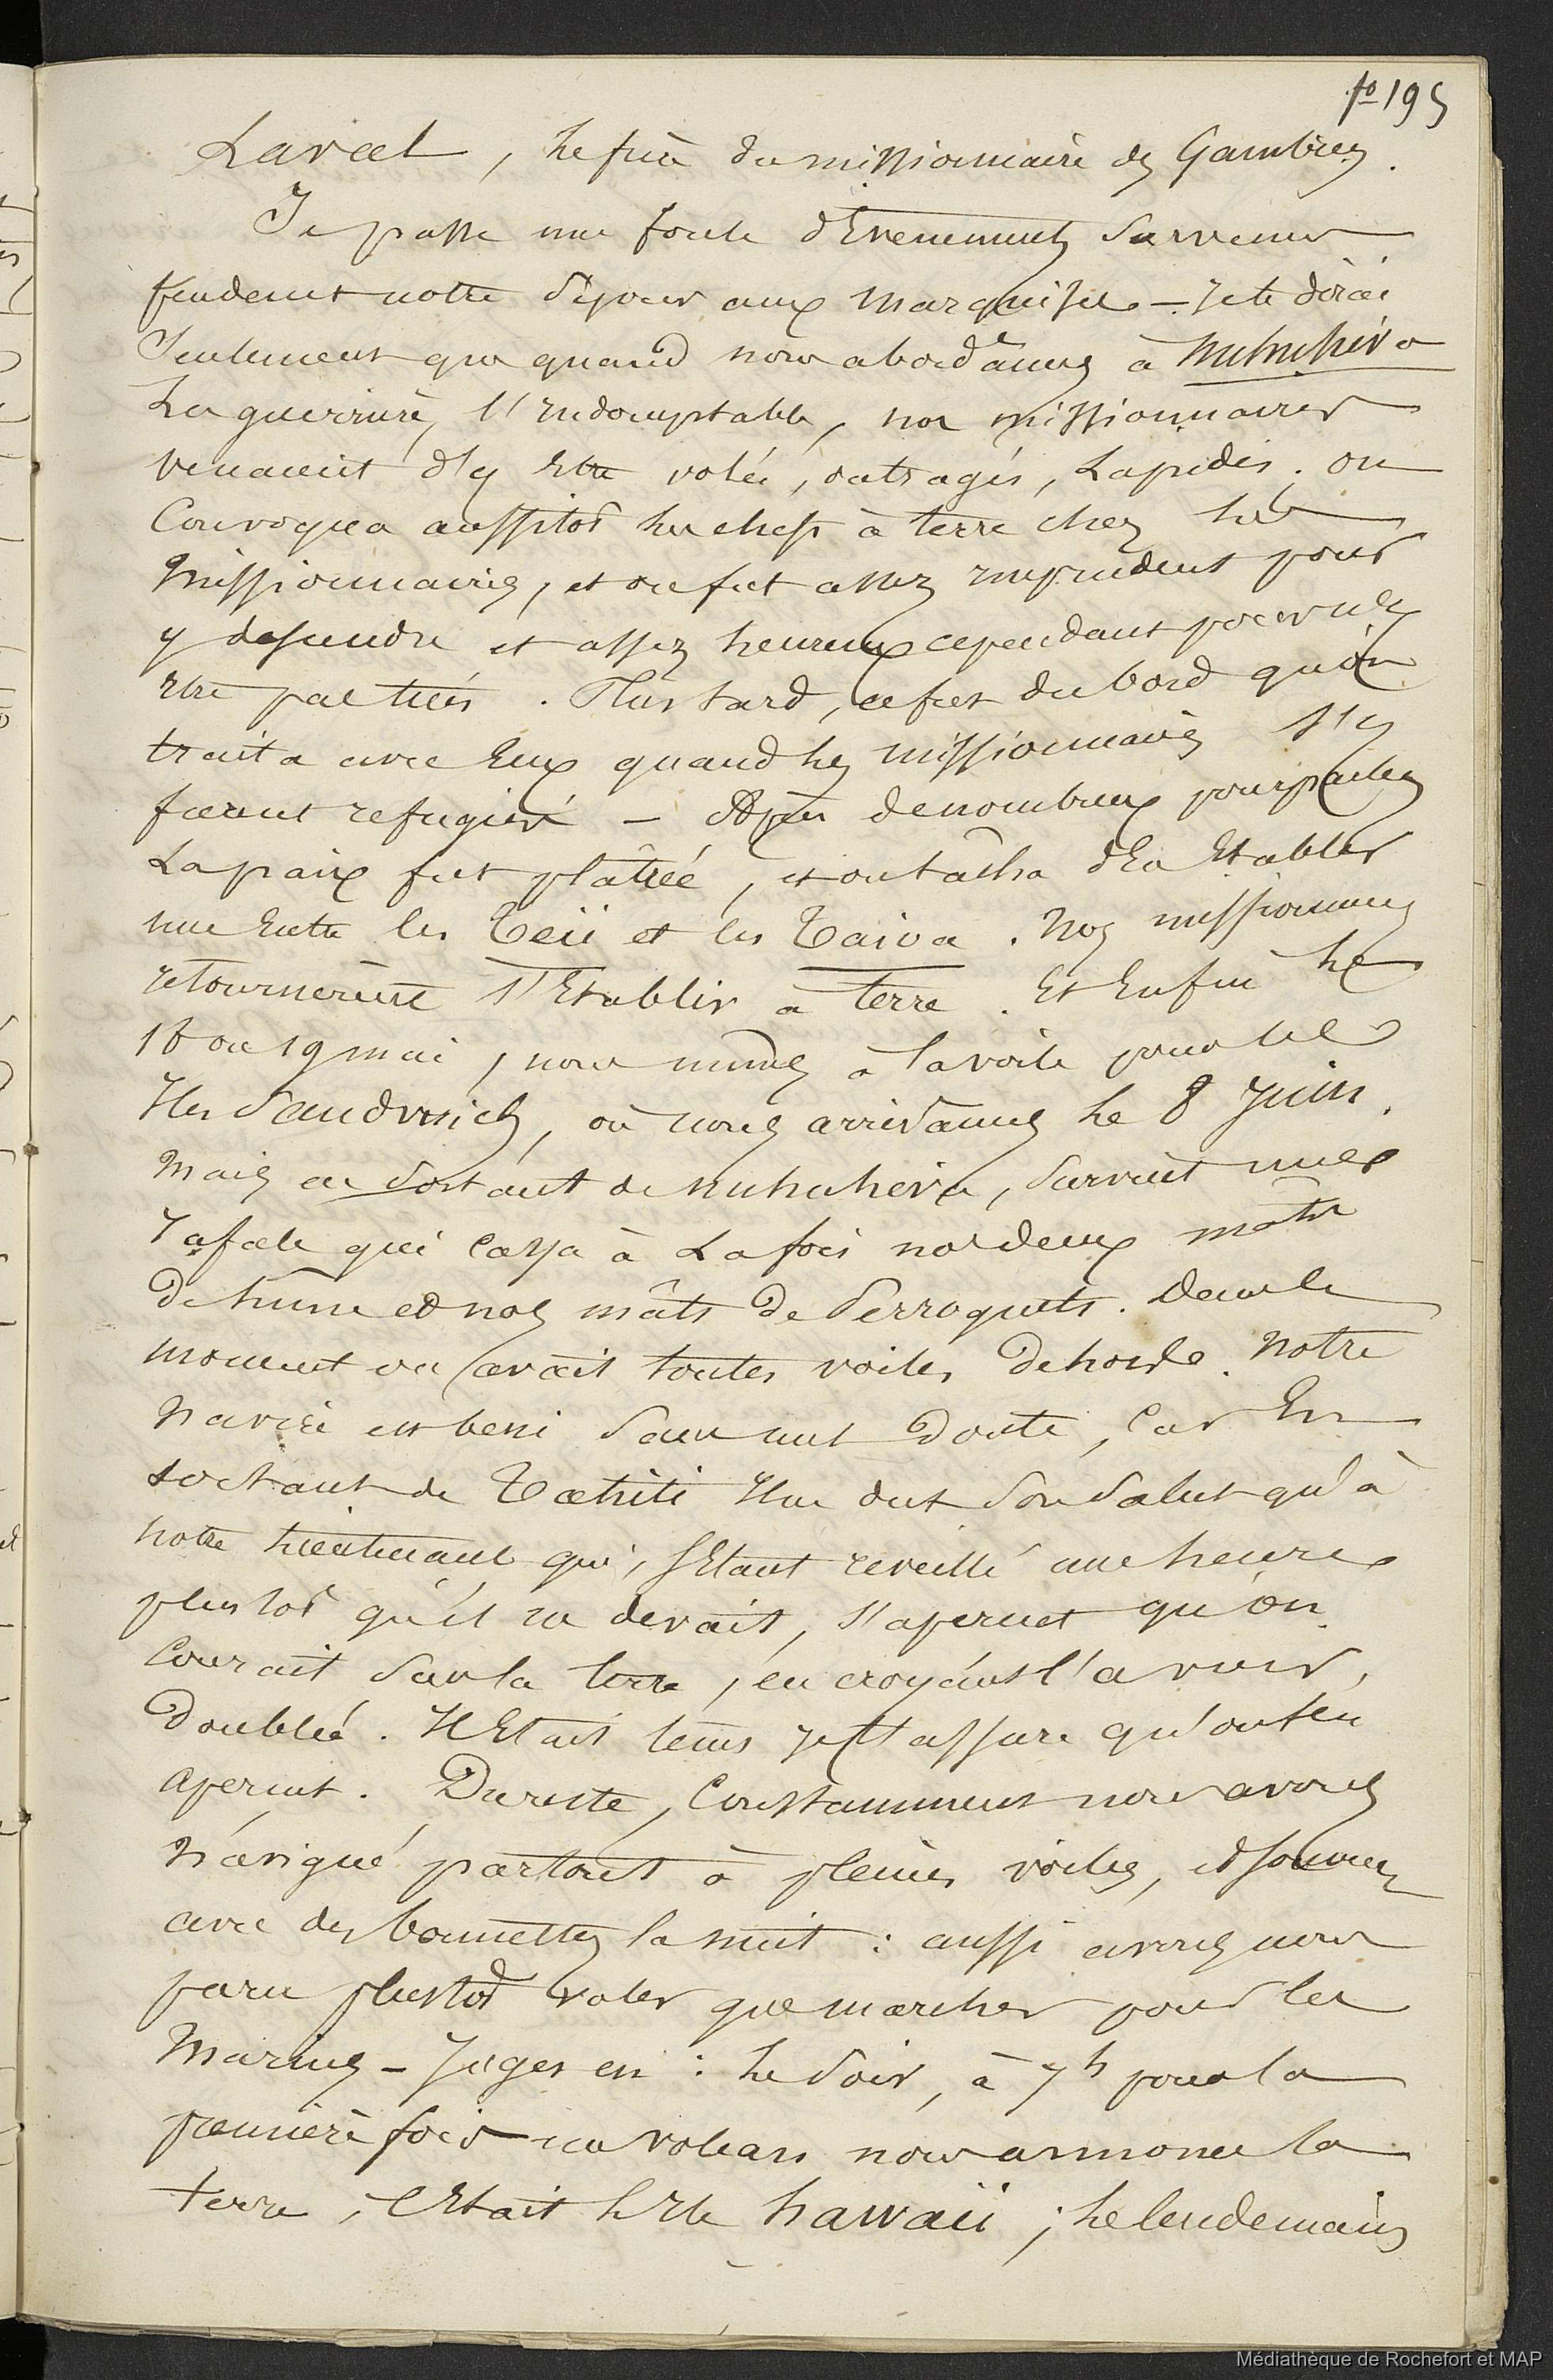 fo 195
Laval, le frère du missionnaire des Gambiers.
Je passe une foule d'Evenements survenus
pendant notre séjour aux Marquises – Je te dirai
seulement que quand nous abordâmes à Nuhuhiva
La guerrière, l'indomptable, nos missionnaires
venaient d'y Etre volés, outragés, Lapidés. on
Convoqua aussitot les chefs à terre chez les
Missionnaires, et on fut assez imprudent pour
y descendre et assez heureux cependant pour n'y
Etre pas tués. Plus tard, ce fut du bord qu'on
traita avec Eux quand les missionnaires s'y
furent refugiés – Après de nombreux pourparlers
La paix fut platrée, et on tâcha d'En Etablir
une Entre les Teii et les Taioa. Nos missionnaires
retournèrent s'Etablir à terre. Et Enfin le
18 ou 19 mai, nous mimes à la voile pour les
Iles Sandwich, où nous arrivâmes le 8 Juin.
Mais en sortant de Nuhuhiva, survint une
rafale qui cassa à La fois nos deux mâts
De hune et nos mâts de Perroquets. Dans le
moment on avait toutes voiles dehors. Notre
Navire est beni sans nul Doute, Car En
sortant de Taehiti Il ne dut son salut qu'à
notre lieutenant qui, s'Etant reveillé une heure
plus tot qu'il ne devait, s'aperçut qu'on
Courait sur la terre, en croyant l'avoir
Doublée. Il Etait tems je t'assure qu'on s'en
aperçut. Du reste, Constamment nous avons
Navigué partout à pleines voiles, et souvent
avec des bonnettes la nuit : aussi avons nous
paru plustot voler que marcher pour les
Marins – Juges en : le soir, à 7h pour la
première fois un volcan nous annonce la
terre, c'Etait l'Ile hawaii ; le lendemain
Médiathèque de Rochefort et MAP